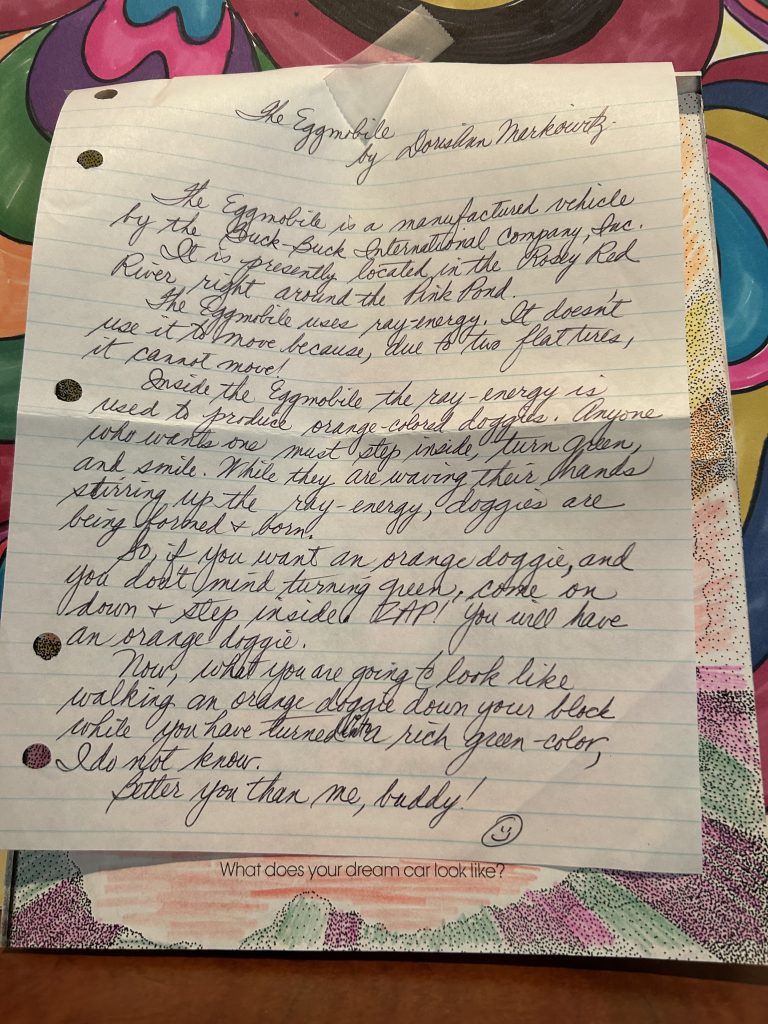 The Eggmobile
by DorisAnn Markowitz
The Eggmobile is a manufactured vehicle
by the Buck-Buck International Company, Inc.
It is presently located in the Rosey Red
River right around the Pink Pond.
The Eggmobile uses ray-energy. It doesn't
use it to move because, due to two flat tires,
it cannot move!
Inside the Eggmobile the ray-energy is
used to produce orange-colored doggies. Anyone
who wants one must step inside, turn green,
and smile. While they are waving their hands
stirring up the ray-energy, doggies are
being formed & born.
So, if you want an orange doggie, and
you don't mind turning green, come on
down & step inside. ZAP! You will have
an orange doggie.
Now, what you are going to look like
walking an orange doggie down your block
while you have turned into a rich green-color,
I do not know.
Better you than me, buddy!
What does your dream car look like?